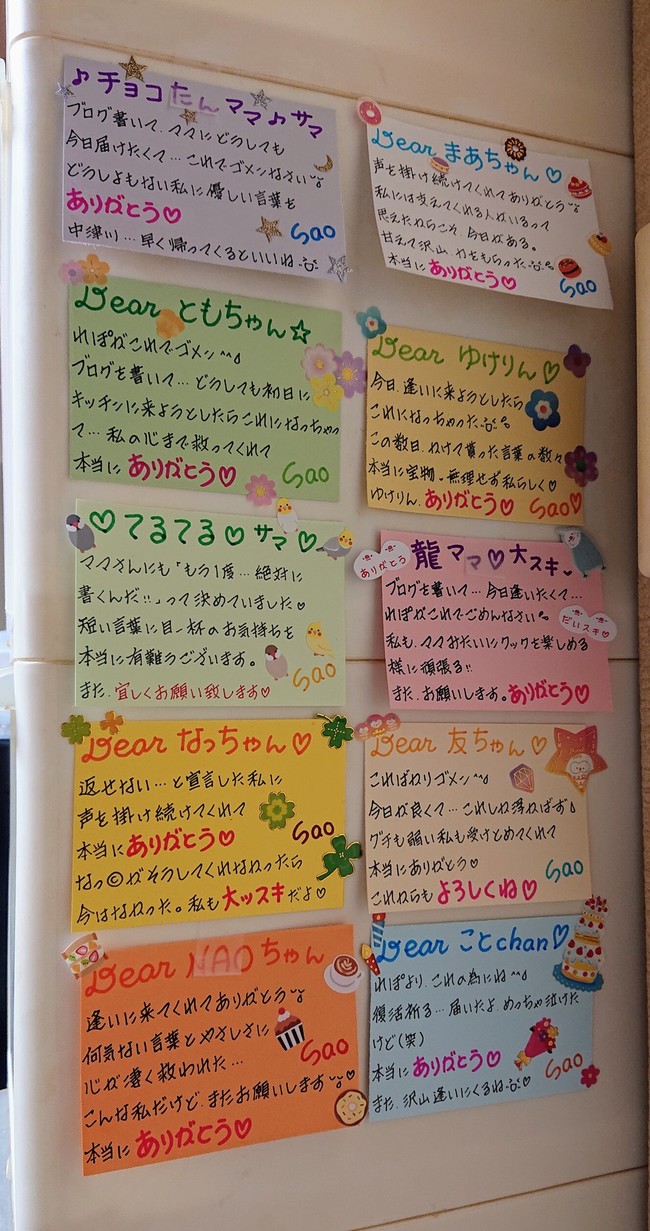 ♪チョコたんママ♪サマ
ブログ書いて、ママにどうしても
今日届けたくて…これでゴメンなさい
どうしよもない私に優しい言葉を
ありがとう♡
Sao
中津川…早く帰ってくるといいね
Dear まあちゃん♡
声を掛け続けてくれてありがとう
私には支えてくれる人がいるって
思えたからこそ 今日がある。
甘えて沢山 力をもらった
本当にありがとう♡
Sao
Dear ともちゃん☆
れぽがこれでゴメン^^
ブログを書いて…どうしても初日に
キッチンに来ようとしたらこれになっちゃっ
て…私の心まで救ってくれて
本当に ありがとう♡
Sao
Dear ゆけりん♡
今日、逢いに来ようとしたら
これになっちゃった
この数日、かけて貰った言葉の数々
本当に宝物。無理せず私らしく♡
ゆけりん、ありがとう♡
Sao♡
♡てるてる♡サマ♡
ママさんにも「もう1度…絶対に
書くんだ!!」って決めていました
短い言葉に目一杯のお気持ちを
本当に有難うございます。
Sao
また、宜しくお願い致します♡
ありがとう
龍ママ♡大スキ
ブログを書いて…今日逢いたくて…
れぽがこれでごめんなさい
だいスキ♡
私も、ママみたいにクックを楽しめる
様に頑張る!!
また、お願いします。ありがとう♡
Dear なっちゃん♡
返せない…と宣言した私に
声を掛け続けてくれて
本当にありがとう♡
Sao
なっ©がそうしてくれなかったら
今はなかった。私も大ッスキだよ♡
Dear 友ちゃん♡
こればかりゴメン^^
今日が良くて…これしか浮かばず
グチも弱い私も受けとめてくれて
本当にありがとう♡
Sao
これからも よろしくね♡
Dear NAOちゃん
逢いに来てくれてありがとう
何気ない言葉とやさしさに
心が凄く救われた…
Sao
こんな私だけど、またお願いします
本当に ありがとう♡
Dear ことchan♡
れぽより、これの為にね^^
復活祈る…届いたよ、めっちゃ泣けた
けど(笑)
本当に ありがとう♡
Sao
また、沢山逢いにくるね